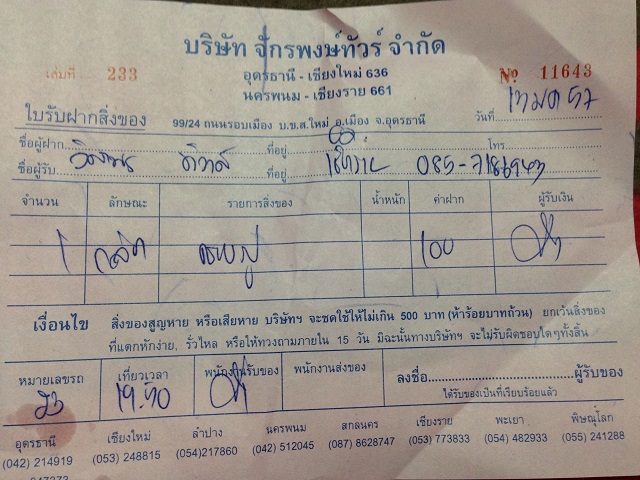 บริษัท จักรพงษ์ทัวร์ จำกัด
เล่มที่ 233 อุดรธานี - เชียงใหม่ 636 № 11643
นครพนม - เชียงราย 661
ใบรับฝากสิ่งของ 99/24 ถนนรอบเมือง บ.ข.ส.ใหม่ อ.เมือง จ.อุดรธานี วันที่ 17 มค 57
ชื่อผู้ฝาก ที่อยู่ โทร
ชื่อผู้รับ ที่อยู่
จำนวน ลักษณะ รายการสิ่งของ น้ำหนัก ค่าฝาก ผู้รับเงิน
1 100
เงื่อนไข สิ่งของสูญหาย หรือเสียหาย บริษัทฯ จะชดใช้ให้ไม่เกิน 500 บาท (ห้าร้อยบาทถ้วน) ยกเว้นสิ่งของ
ที่แตกหักง่าย, รั่วไหล หรือให้ทวงถามภายใน 15 วัน มิฉะนั้นทางบริษัทฯ จะไม่รับผิดชอบใดๆทั้งสิ้น
หมายเลขรถ เที่ยวเวลา พนักงานรับของ พนักงานส่งของ ลงชื่อ ผู้รับของ
ได้รับของเป็นที่เรียบร้อยแล้ว
23 19:30
อุดรธานี เชียงใหม่ ลำปาง นครพนม สกลนคร เชียงราย พะเยา พิษณุโลก
(042) 214919 (053) 248815 (054)217860 (042) 512045 (087) 8628747 (053) 773833 (054) 482933 (055) 241288